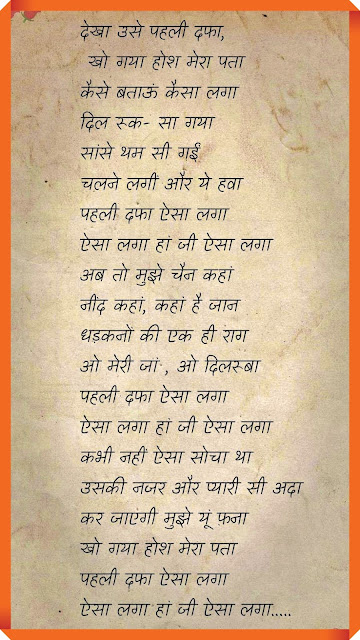 देखा उसे पहली दफा,
खो गया होश मेरा पता
कैसे बताऊं कैसा लगा
दिल स्क- सा गया
सांसे थम सी गईं
चलने लगीं और ये हवा
पहली दफा ऐसा लगा
ऐसा लगा हां जी ऐसा लगा
अब तो मुझे चैन कहां
नींद कहां, कहां है जान
धड़कनों की एक ही राग
ओ मेरी जां , ओ दिलस्बा
पहली दफा ऐसा लगा
ऐसा लगा हां जी ऐसा लगा
कभी नहीं ऐसा सोचा था
उसकी नजर और प्यारी सी अदा
कर जाएंगी मुझे यूं फना
खो गया होश मेरा पता
पहली दफा ऐसा लगा
ऐसा लगा हां जी ऐसा लगा.....